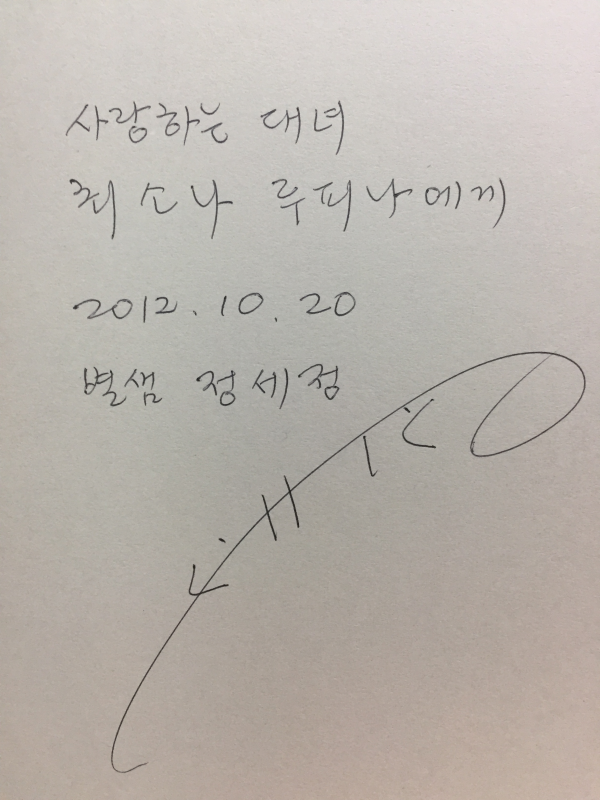 사랑하는 대녀
최소나 루피나에게
2012. 10. 20
별샘 정세정